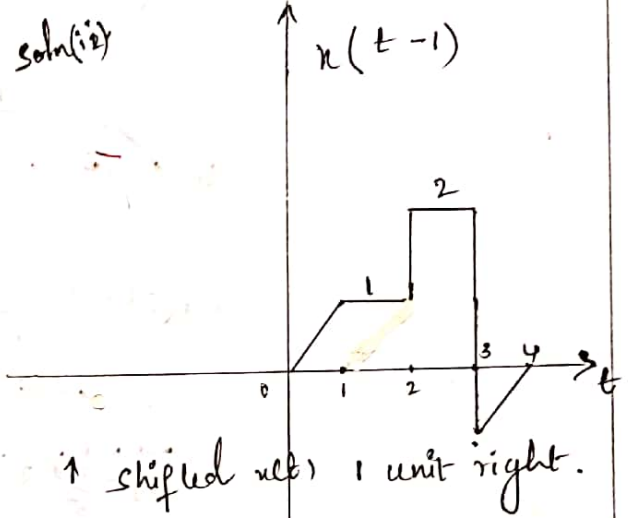 soln(ii)
x(t-1)
2
1
3 4
0 1 2 t
↑ shifted x(t) 1 unit right.